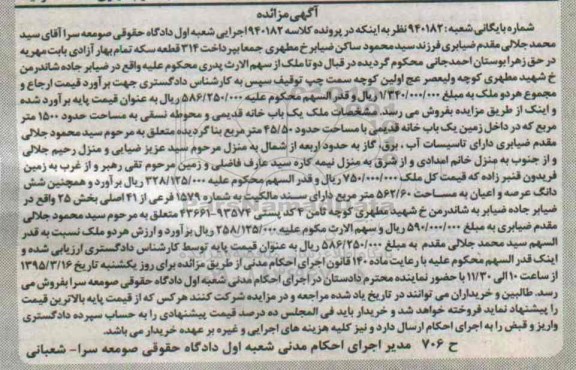 آگهی مزائده
شماره بایگانی شعبه: ۹۴۰۱۸۲ نظر به اینکه در پرونده کلاسه ۹۴۰۱۸۲ اجرایی شعبه اول دادگاه حقوقی صومعه سرا آقای سید
محمد جلالی مقدم ضیابری فرزند سید محمود ساکن ضیابر خ مطهری جمعا بپرداخت ۳۱۴ قطعه سکه تمام بهار آزادی بابت مهریه
در حق زهرا بوستان احمدجانی محکوم گردیده در قبال دوتا ملک از سهم الارث پدری محکوم علیه واقع در ضیابر جاده شاندرمن
خ شهید مطهری کوچه ولیعصر عج اولین کوچه سمت چپ توقیف سپس به کارشناس دادگستری جهت برآورد قیمت ارجاع و
مجموع هردو ملک به مبلغ ۱/۳۴۰/۰۰۰/۰۰۰ ریال و قدر السهم محکوم علیه ۵۸۶/۲۵۰/۰۰۰ ریال به عنوان قیمت پایه برآورد شده
و اینک از طریق مزایده بفروش می رسد. مشخصات ملک یک باب خانه قدیمی و محوطه نسقی به مساحت حدود ۱۵۰۰ متر
مربع که در داخل زمین یک باب خانه قدیمی با مساحت حدود ۴۵/۵۰ متر مربع بنا گردیده متعلق به مرحوم سید محمود جلالی
مقدم ضیابری دارای تاسیسات آب، برق، گاز به حدود اربعه از شمال به منزل مرحوم سید عزیز ضیایی و منزل رحیم جلالی
و از جنوب به منزل خانم امدادی و از شرق به منزل نیمه کاره سید عارف فاضلی و زمین مرحوم تقی رهبر و از غرب به زمین
فریدون قنبر زاده که قیمت کل ملک ۷۵۰/۰۰۰/۰۰۰ ریال و قدر السهم محکوم علیه ۳۲۸/۱۲۵/۰۰۰ ریال برآورد و همچنین شش
دانگ عرصه و اعیان به مساحت ۵۶۲/۶۰ متر مربع دارای سند مالکیت به شماره ۱۵۷۷ فرعی از ۴۱ اصلی بخش ۲۵ واقع در
ضیابر جاده ضیابر به شاندرمن خ شهید مطهری کوچه ثامن ۴ کد پستی ۹۳۵۷۴-۴۳۶۶۱ متعلق به مرحوم سید محمود جلالی
مقدم ضیابری به مبلغ ۵۹۰/۰۰۰/۰۰۰ ریال و سهم الارث مکوم علیه ۲۵۸/۱۲۵/۰۰۰ ریال برآورد و ارزش هردو ملک نسبت به قدر
السهم سید محمد جلالی مقدم به مبلغ ۵۸۶/۲۵۰/۰۰۰ ریال به عنوان قیمت پایه توسط کارشناس دادگستری ارزیابی شده و
اینک قدر السهم محکوم علیه با رعایت ماده ۱۴۰ قانون اجرای احکام مدنی از طریق مزائده برای روز یکشنبه تاریخ ۱۳۹۵/۳/۱۶
از ساعت ۱۰ الی ۱۱/۳۰ با حضور نماینده محترم دادستان در اجرای احکام مدنی شعبه اول دادگاه حقوقی صومعه سرا بفروش می
رسد. طالبین و خریداران می توانند در تاریخ یاد شده مراجعه و در مزایده شرکت کنند هر کس که از قیمت پایه بالاترین قیمت
را پیشنهاد نماید فروخته خواهد شد و خریدار باید فی المجلس ده درصد قیمت پیشنهادی را به حساب سپرده دادگستری
واریز و قبض را به اجرای احکام ارسال دارد و نیز کلیه هزینه های اجرایی و غیره بر عهده خریدار می باشد.
ح ۷۰۶ مدیر اجرای احکام مدنی شعبه اول دادگاه حقوقی صومعه سرا- شعبانی